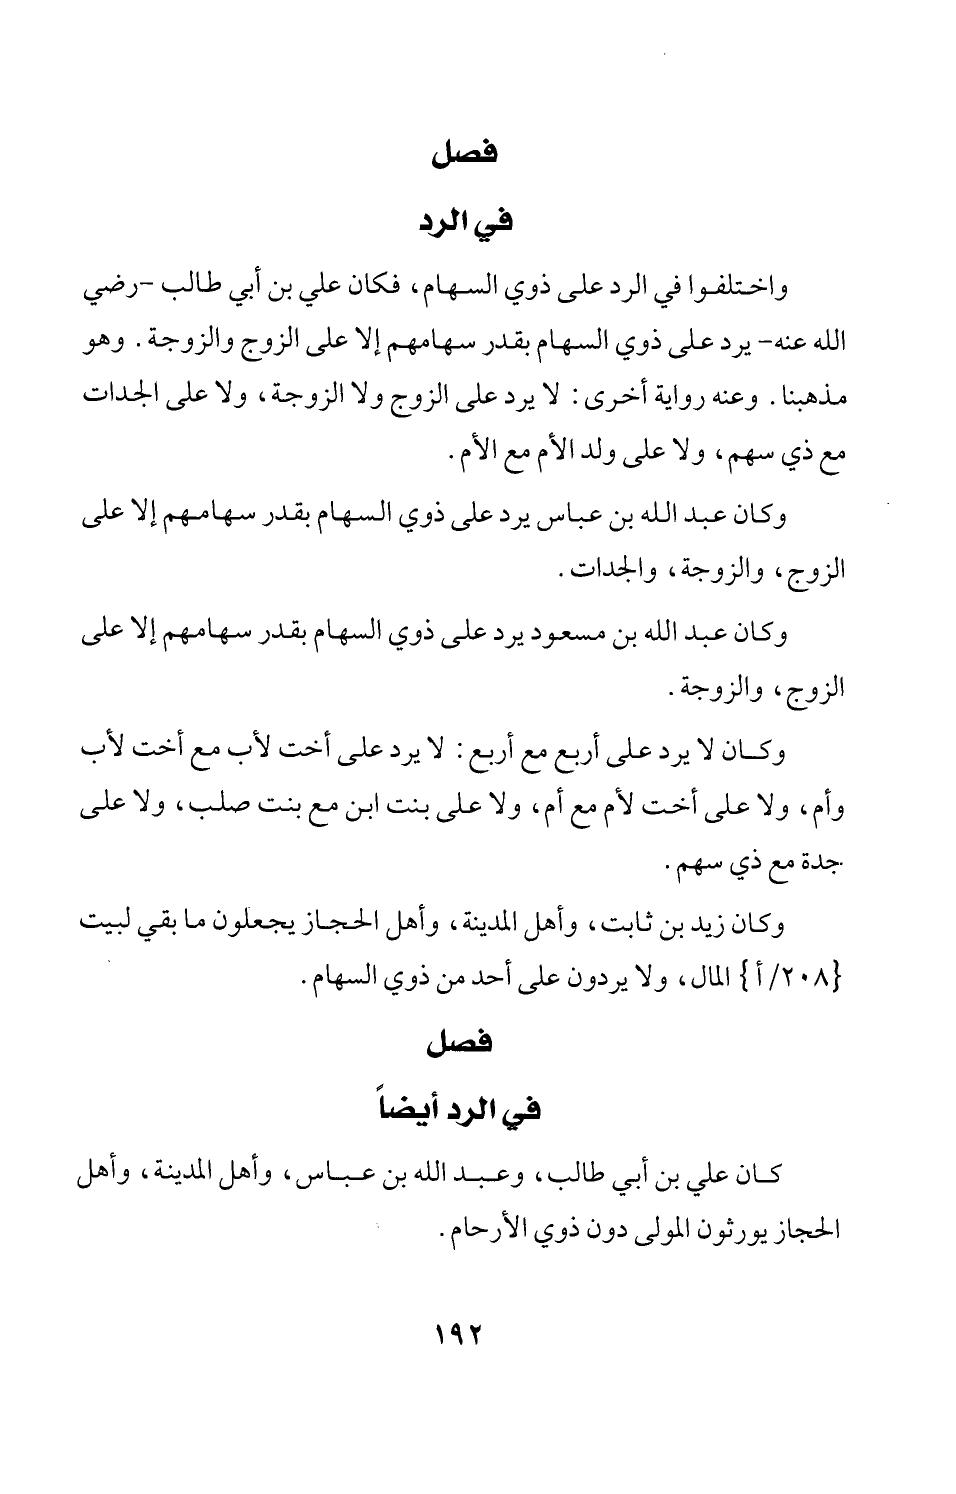 فصل
في الرد
واختلفوا في الرد على ذوي السهام، فكان علي بن أبي طالب -رضي
الله عنه- يرد على ذوي السهام بقدر سهامهم إلا على الزوج والزوجة. وهو
مذهبنا. وعنه رواية أخرى: لا يرد على الزوج ولا الزوجة، ولا على الجدات
مع ذي سهم، ولا على ولد الأم مع الأم.
وكان عبد الله بن عباس يرد على ذوي السهام بقدر سهامهم إلا على
الزوج، والزوجة، والجدات.
وكان عبد الله بن مسعود يرد على ذوي السهام بقدر سهامهم إلا على
الزوج، والزوجة.
وكان لا يرد على أربع مع أربع: لا يرد على أخت لأب مع أخت لأب
وأم، ولا على أخت لأم مع أم، ولا على بنت ابن مع بنت صلب، ولا على
جدة مع ذي سهم.
وكان زيد بن ثابت، وأهل المدينة، وأهل الحجاز يجعلون ما بقي لبيت
{٢٠٨/أ} المال، ولا يردون على أحد من ذوي السهام.
فصل
في الرد أيضاً
كان علي بن أبي طالب، وعبد الله بن عباس، وأهل المدينة، وأهل
الحجاز يورثون المولى دون ذوي الأرحام.
١٩٢